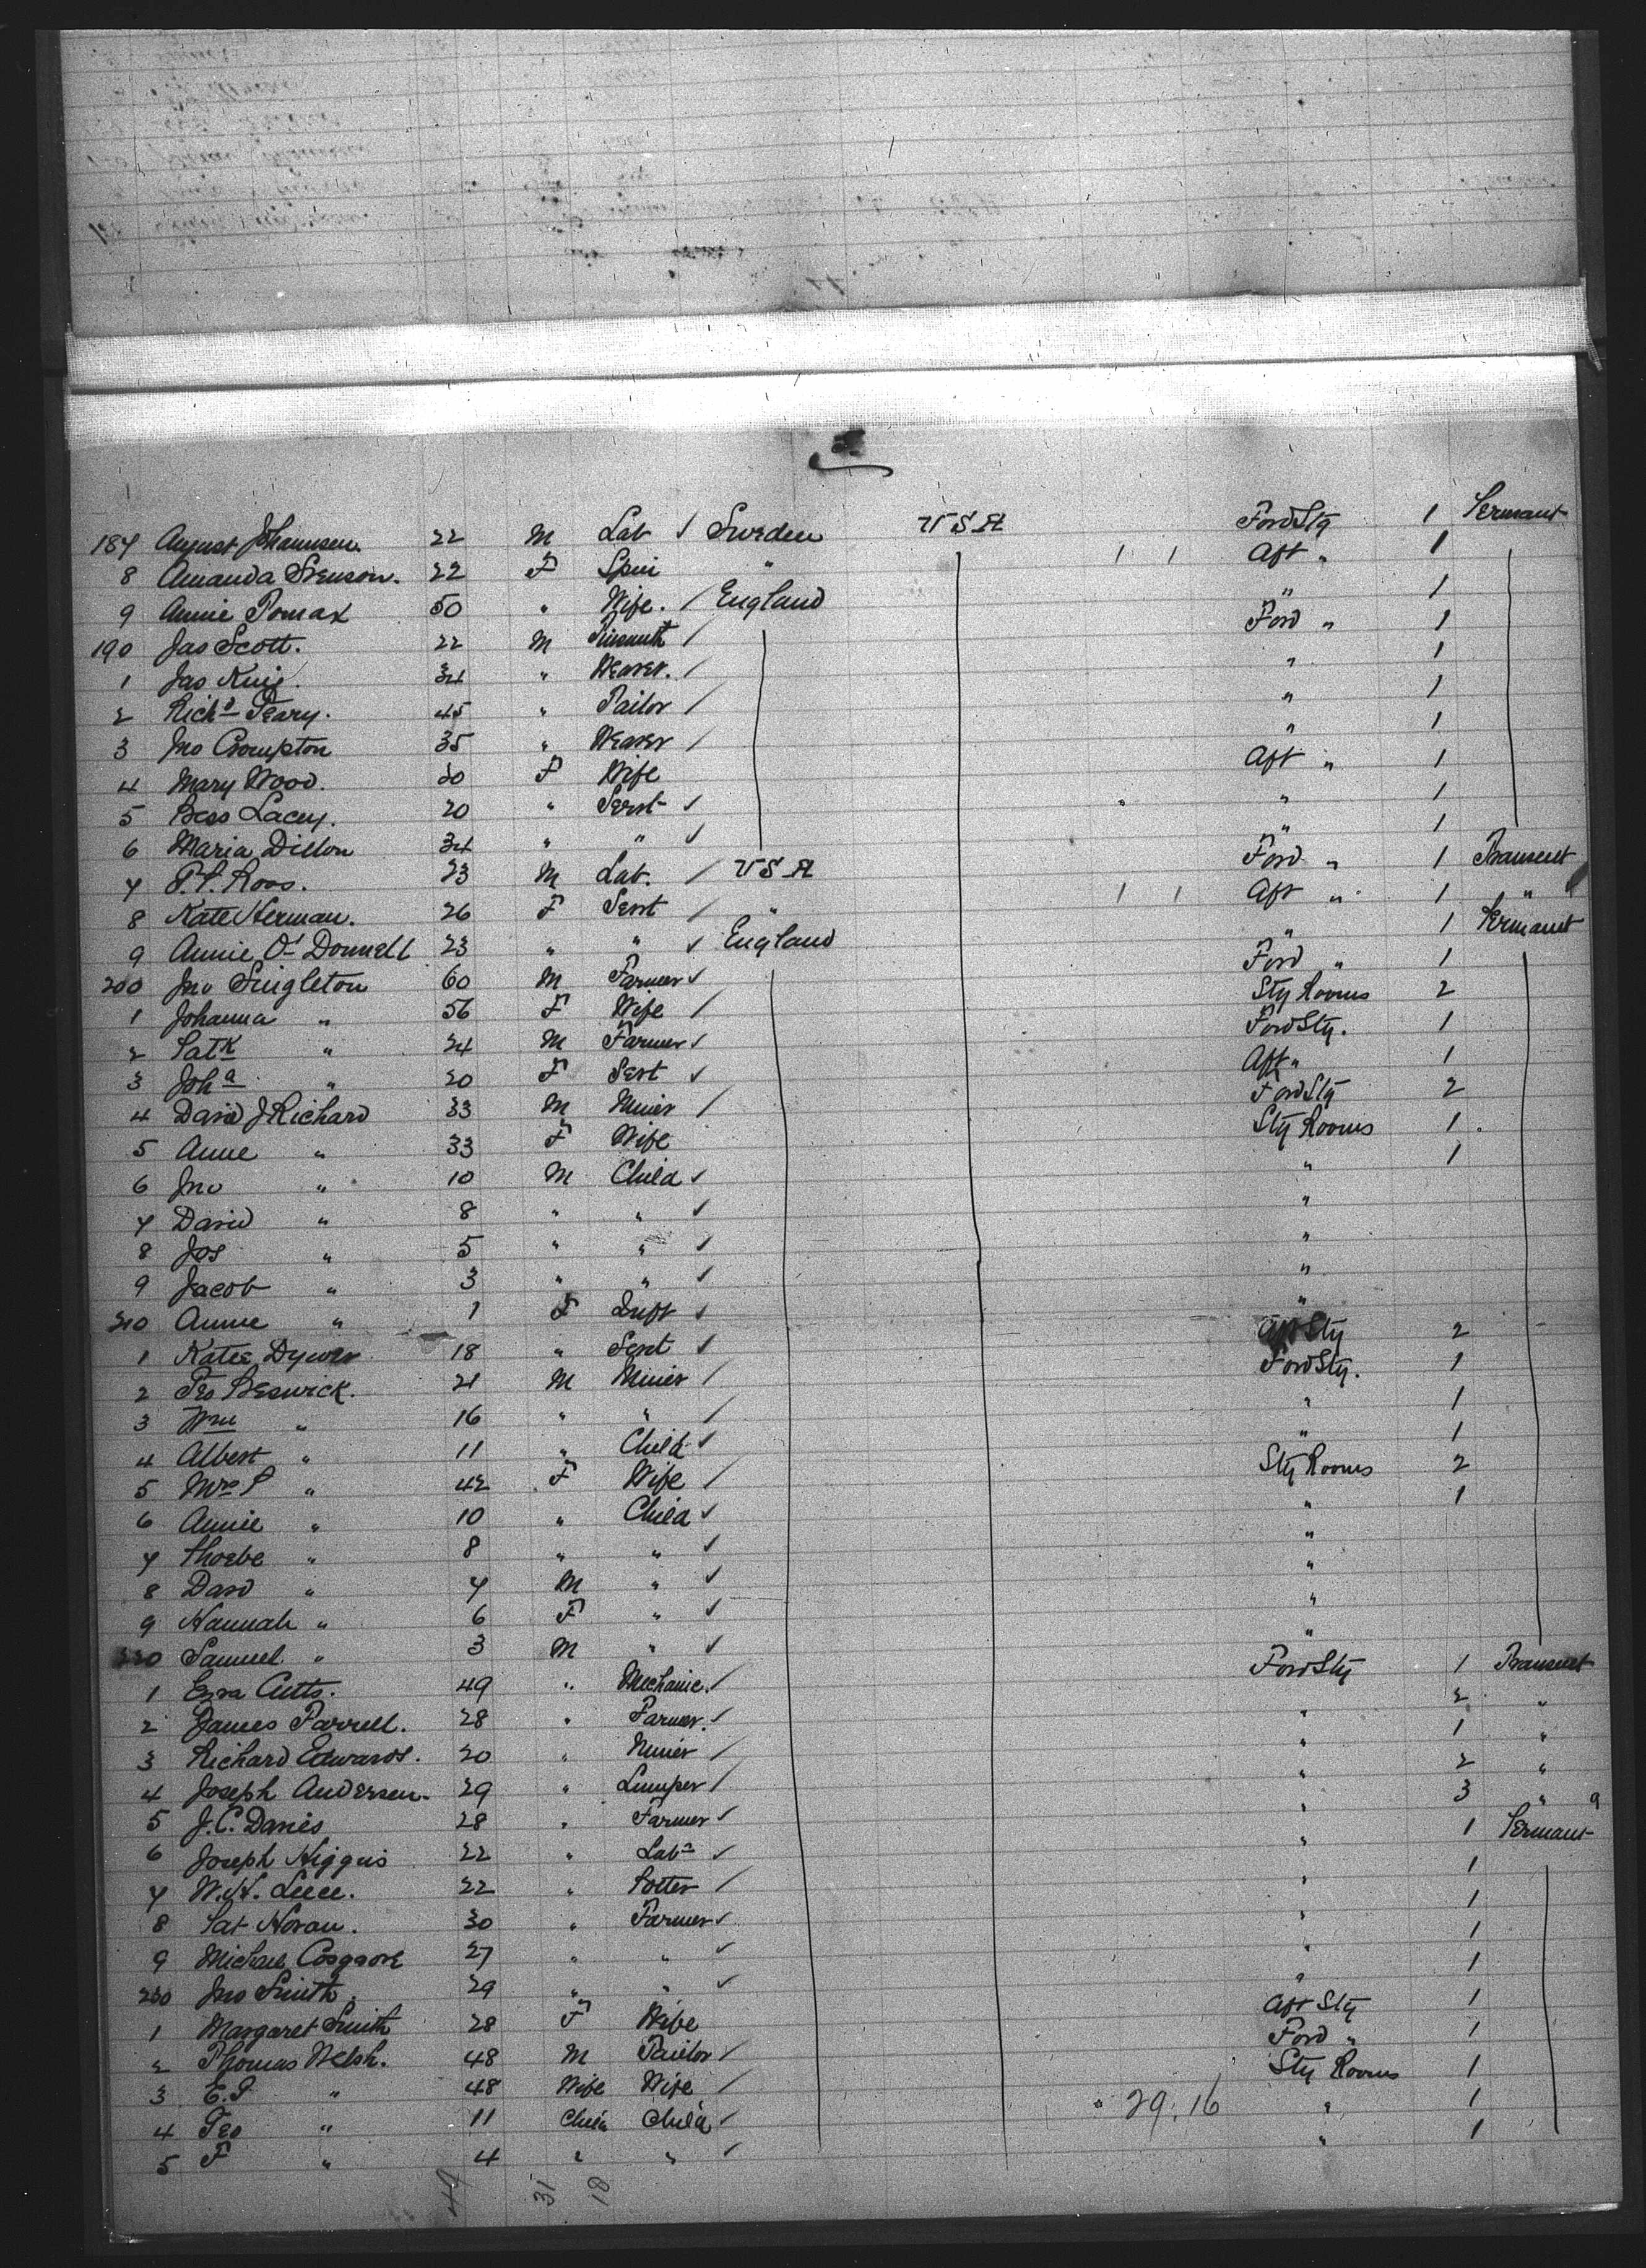 187 August Johannsen. 22 M Lab ✓ Sweden U S A Ford Sty 1 Permant
8 Amanda Svenson. 22 F Spin " 1 1 Aft " 1
9 Annie Pomax 50 " Wife. / England " 1
190 Jas Scott. 22 M / Ford " 1
1 Jas King. 34 " Weaver. / " 1
2 Richd Peary. 45 " Tailor / " 1
3 Jno Crompton 35 " Weaver / " 1
4 Mary Wood. 30 F Wife Aft " 1
5 Bess Lacey. 20 " Servt ✓ " 1
6 Maria Dillon 34 " " ✓ " 1
7 P.S. Roos. 23 M Lab. / U S A Ford " 1 Transeut
8 Kate Herman. 26 F Servt / " 1 1 Aft " 1 "
9 Annie O'Donnell 23 " " ✓ England " 1 Permant
200 Jno Singleton 60 M Farmer ✓ Ford " 1
1 Johanna " 56 F Wife / Sty Rooms 2
2 Patk " 24 M Farmer ✓ Ford Sty. 1
3 Joha " 20 F Servt ✓ Aft " 1
4 David J Richard 33 M Miner / Ford Sty 2
5 Anne " 33 F Wife Sty Rooms 1
6 Jno " 10 M Child ✓ " 1
7 David " 8 " " ✓ "
8 Jos " 5 " " ✓ "
9 Jacob " 3 " " ✓ "
210 Annie " 1 F Inft ✓ "
1 Katie Dywer 18 " Servt ✓ Aft Sty 2
2 Geo Beswick. 21 M Miner / Ford Sty. 1
3 Wm " 16 " " / " 1
4 Albert " 11 " Child ✓ " 1
5 Mrs S " 42 F Wife / Sty Rooms 2
6 Annie " 10 " Child ✓ " 1
7 Phoebe " 8 " " ✓ "
8 Davd " 7 M " ✓ "
9 Hannah " 6 F " ✓ "
220 Samuel " 3 M " ✓ "
1 Ezra Cutts. 49 " Mechanic. / Ford Sty 1 Transeut
2 James Farrell. 28 " Farmer. / " 2 "
3 Richard Edwards. 20 " Miner / " 1 "
4 Joseph Andersen. 29 " Lumper / " 2 "
5 J.C. Davies 28 " Farmer ✓ " 3 " 9
6 Joseph Higgins 22 " Labr ✓ " 1 Permant
7 W.H. Leece. 22 " Potter / " 1
8 Pat Horan. 30 " Farmer ✓ " 1
9 Michael Cosgrove 27 " " ✓ " 1
230 Jno Smith. 29 " " ✓ " 1
1 Margaret Smith 28 F Wife Aft Sty 1
2 Thomas Welsh. 48 M Tailor ✓ Ford " 1
3 E.P " 48 Wife Wife / Sty Rooms 1
4 Geo " 11 Child Child ✓ 29.16 " 1
5 F " 4 " " ✓ " 1
49 31 18